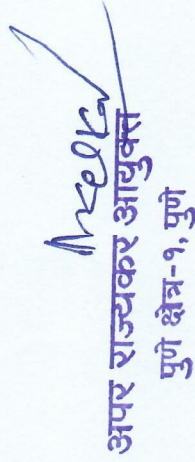 अपर राज्यकर आयुक्त
पुणे क्षेत्र-१, पुणे